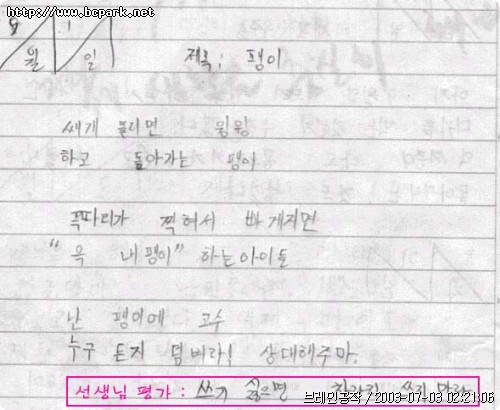 http://www.bcpark.net
월 일
제목: 팽이
쌔게 돌리면 윙윙
하고 돌아가는 팽이
꼭따리가 찍혀서 빠게지면
"윽 내팽이" 하는아이들
난 팽이에 고수
누구 든지 덤비라! 상대해주마.
선생님 평가 : 쓰기 싫으면 차라리 쓰지 말라
브레인공작 / 2003-07-03 02:21:06